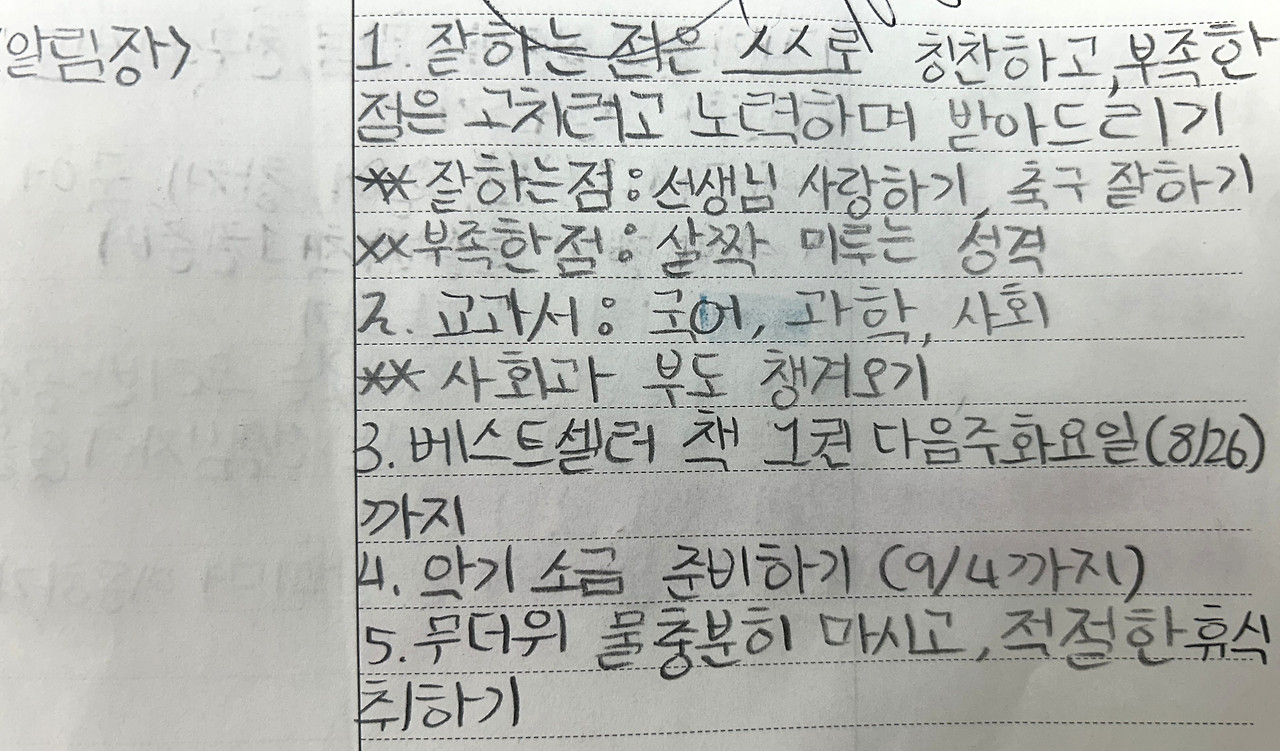 알림장>
1. 잘하는 점은 ㅅㅅ로 칭찬하고, 부족한
점은 고치려고 노력하며 받아드리기
** 잘하는점: 선생님 사랑하기, 축구 잘하기
** 부족한점: 살짝 미루는 성격
2. 교과서: 국어, 과학, 사회
** 사회과 부도 챙겨오기
3. 베스트셀러 책 1권 다음주화요일(8/26)
까지
4. 악기 소금 준비하기 (9/4까지)
5. 무더위 물충분히 마시고, 적절한휴식
취하기